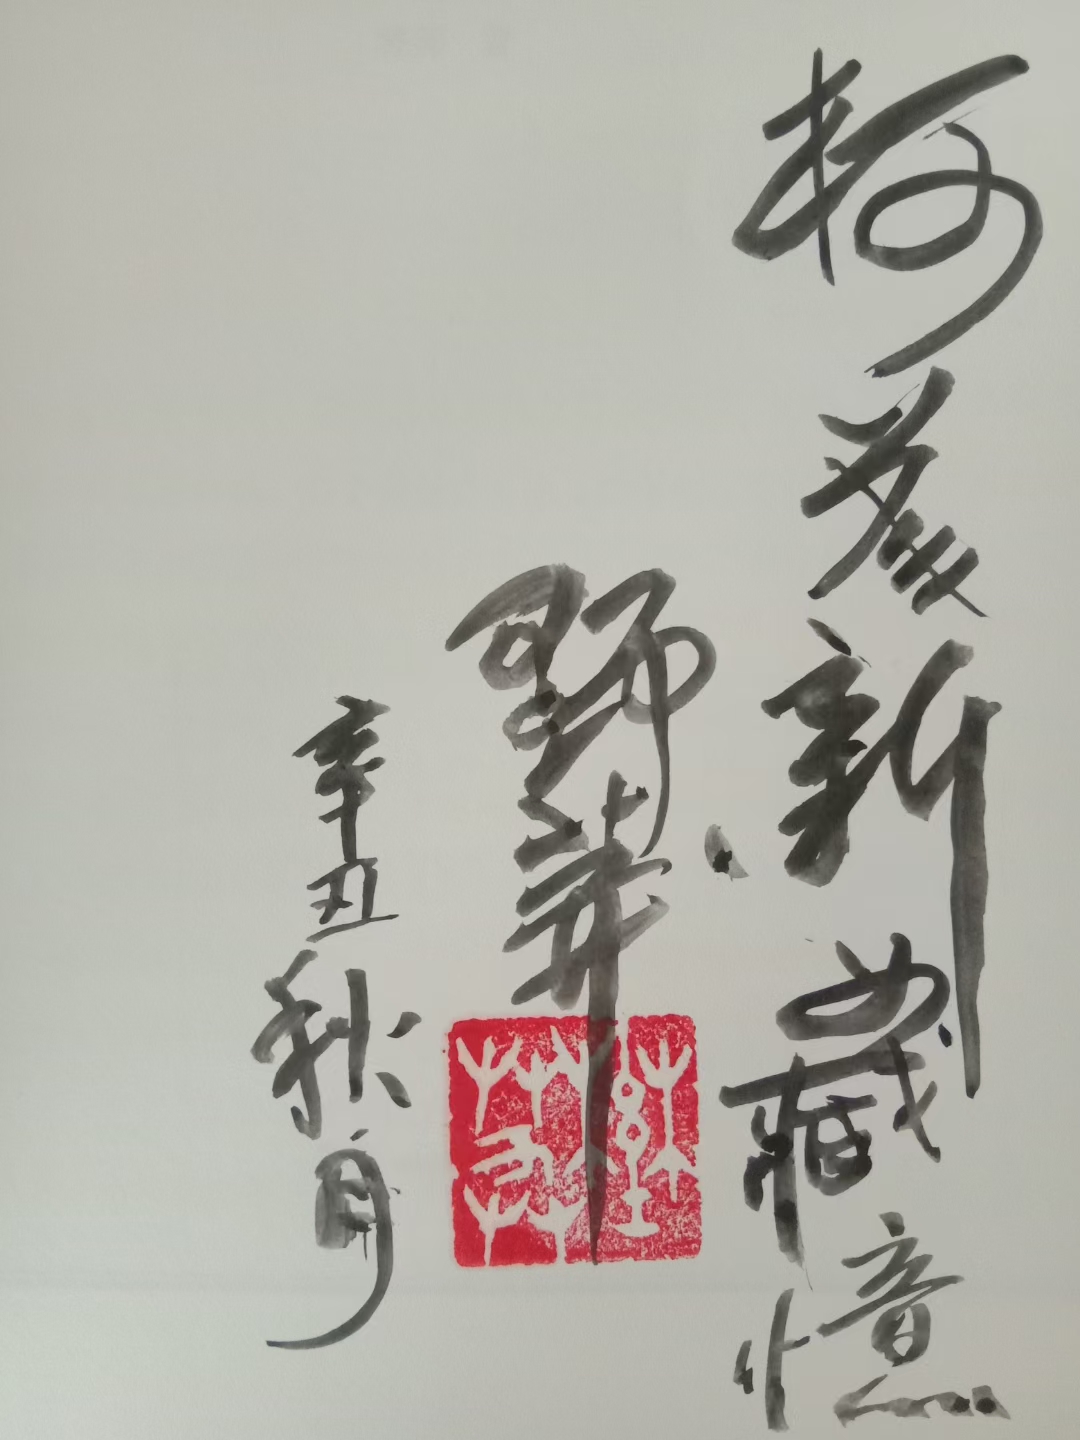 柯 新藏憶
野莽
辛丑秋月